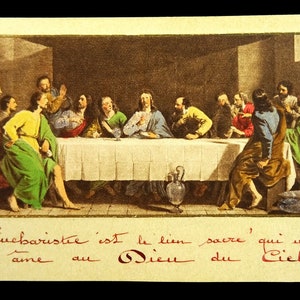 Eucharistie est le lien sacré qui u
âme au Dieu du Ciel